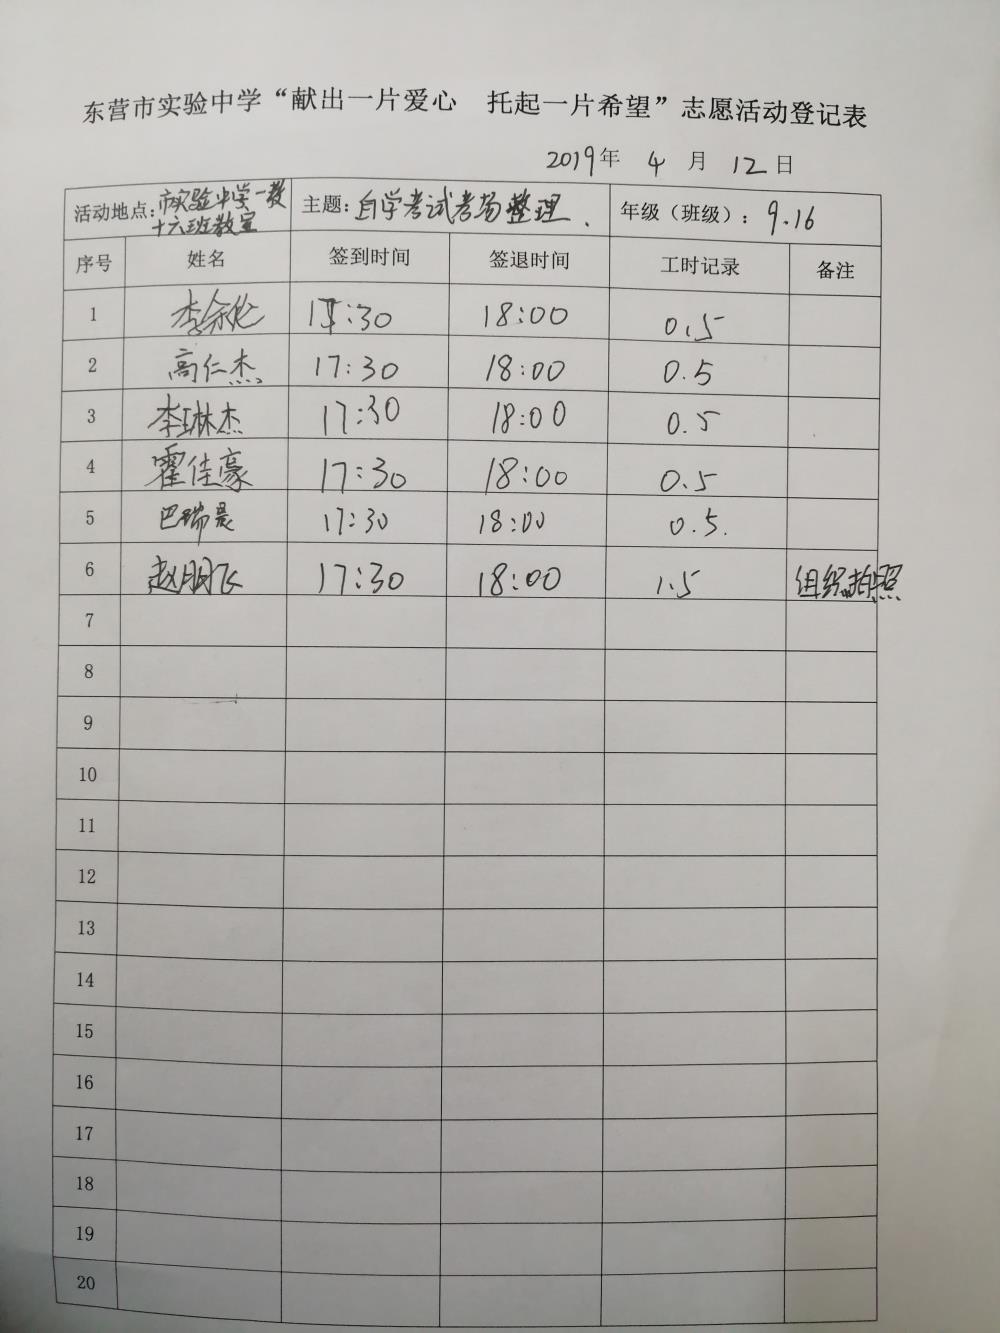 东营市实验中学“献出一片爱心 托起一片希望”志愿活动登记表
2019年 4 月 12 日
活动地点：市实验中学一教十六班教室 主题：自学考试考场整理、 年级（班级）：9.16
序号 姓名 签到时间 签退时间 工时记录 备注
1 李余伦 17:30 18:00 0.5
2 高仁杰 17:30 18:00 0.5
3 李琳杰 17:30 18:00 0.5
4 霍佳豪 17:30 18:00 0.5
5 巴瑞晨 17:30 18:00 0.5.
6 赵朋飞 17:30 18:00 1.5 组织拍照
7
8
9
10
11
12
13
14
15
16
17
18
19
20